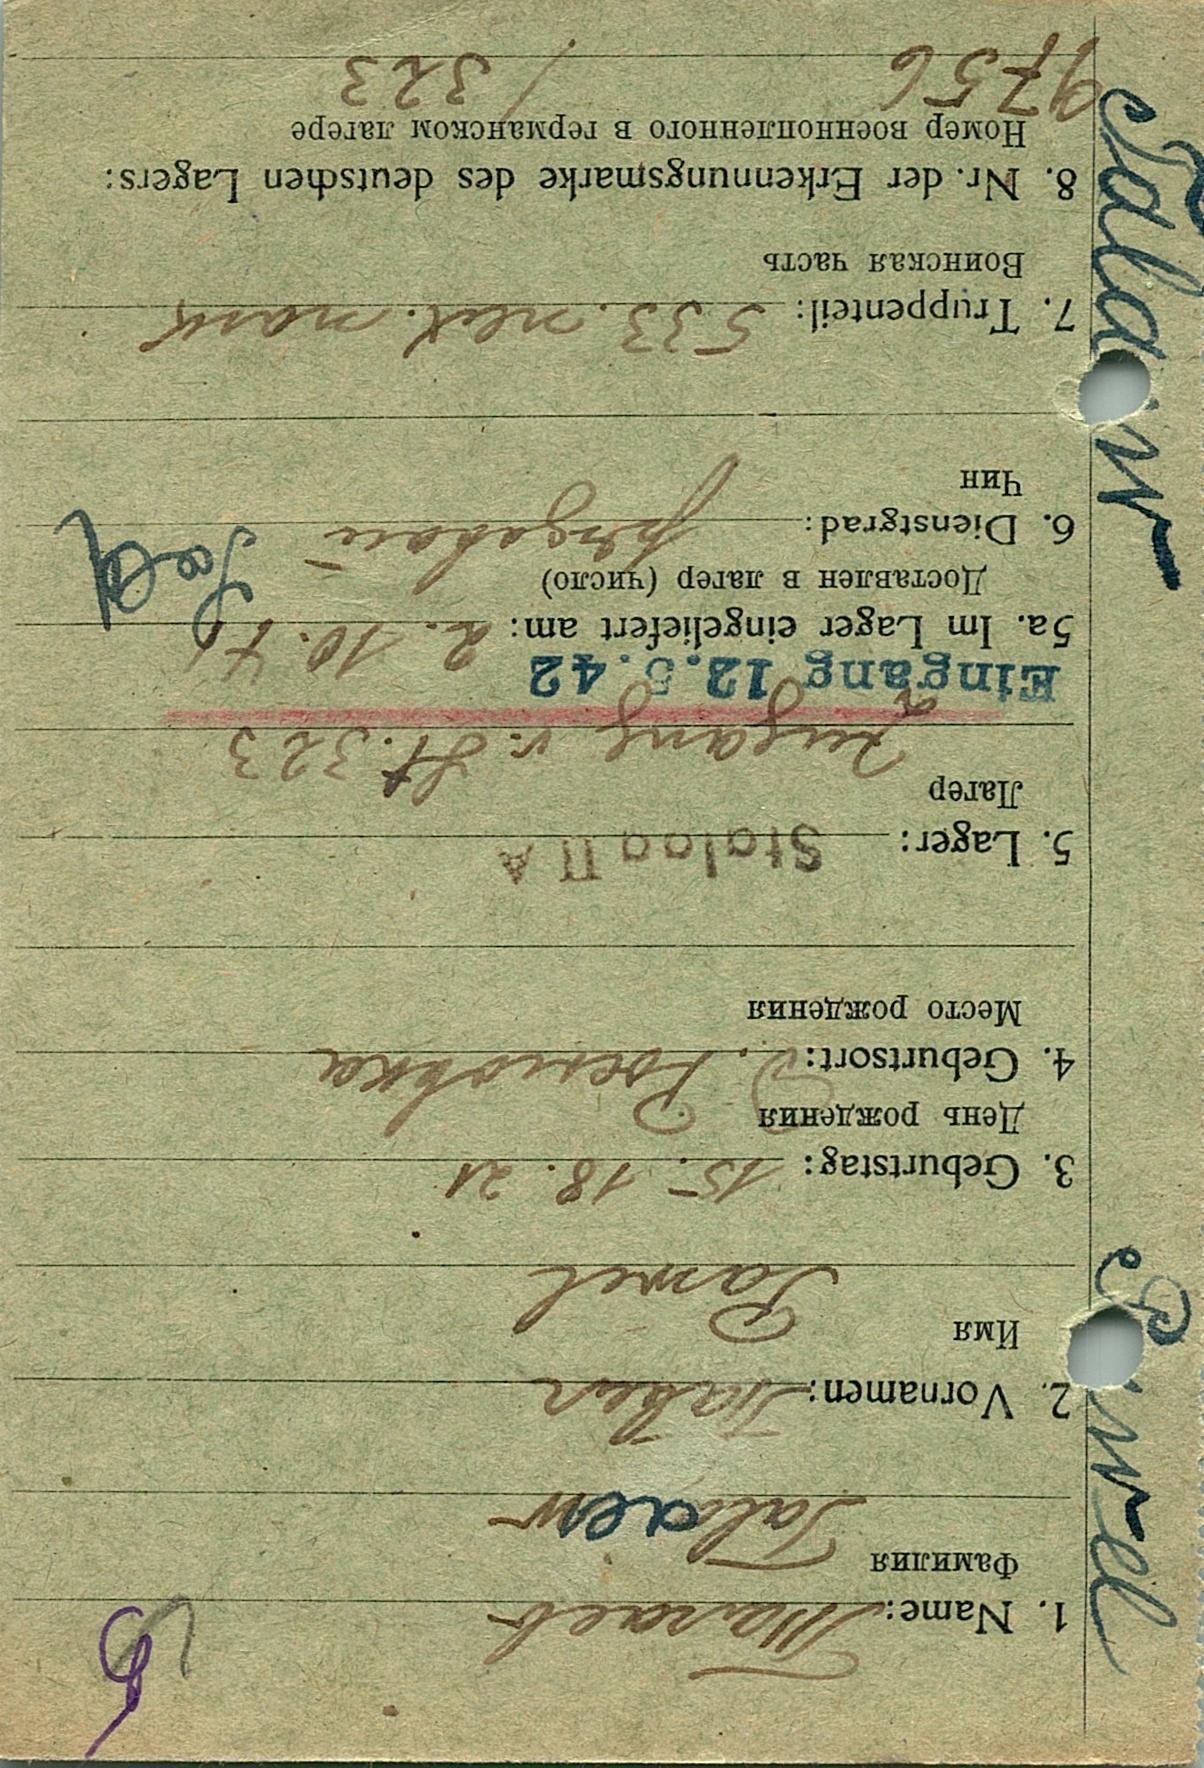 1. Name: Талаев
Фамилия
Talaew
2. Vornamen: Павел
Имя
Pawel
3. Geburtstag: 15. 18. 21
День рождения
4. Geburtsort:
Место рождения
5. Lager: Stalag II A
Лагер
Zugang v. St. 323
Eingang 12.5.42
5a. Im Lager eingeliefert am: 2. 10. 41
Доставлен в лагер (число)
6. Dienstgrad: рядовой
Чин
7. Truppenteil: 533. пех. полк
Воинская часть
8. Nr. der Erkennungsmarke des deutschen Lagers:
Номер военнопленного в германском лагере
9756 / 323
Talaew Pawel